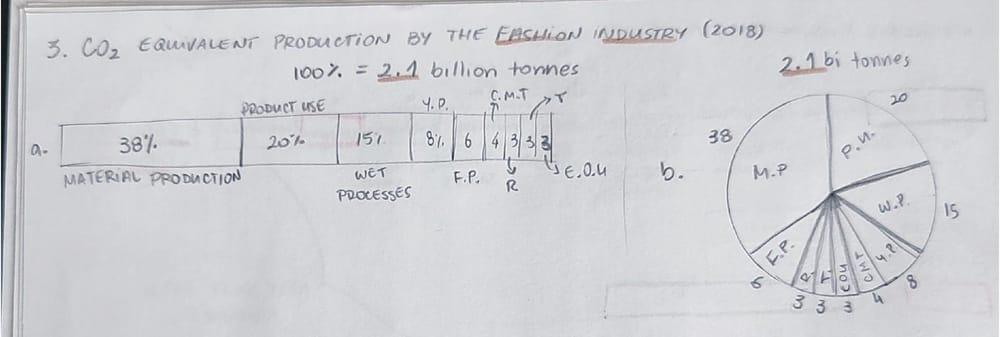 3. CO₂ EQUIVALENT PRODUCTION BY THE FASHION INDUSTRY (2018)
100% = 2.1 billion tonnes
2.1 bi tonnes
PRODUCT USE Y.P. C.M.T T
a. 38% 20% 15% 8% 6 4 3 3 3
MATERIAL PRODUCTION WET PROCESSES F.P. R E.O.U
b.
38 20
M.P P.U.
W.P. 15
F.P. R. T. EOU CMT Y.P.
6 3 3 3 4 8